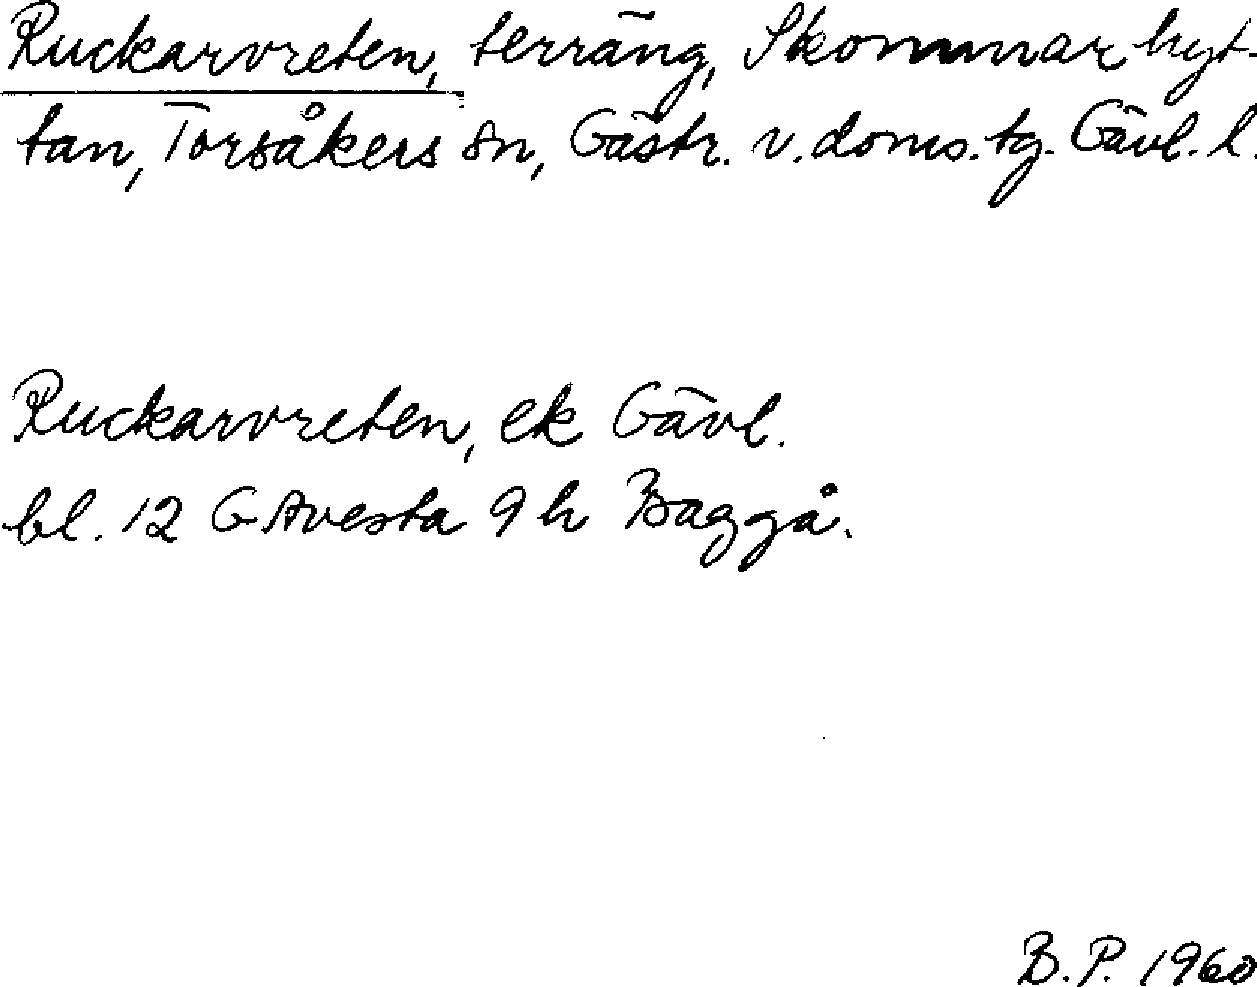 Ruckarvreten, terräng, Skommarhyt-
tan, Torsåkers sn, Gästr. v. doms. tg. Gävl. l.
Ruckarvreten, ek Gävl.
bl. 12 G Avesta 9 h Baggå.
B. P. 1960